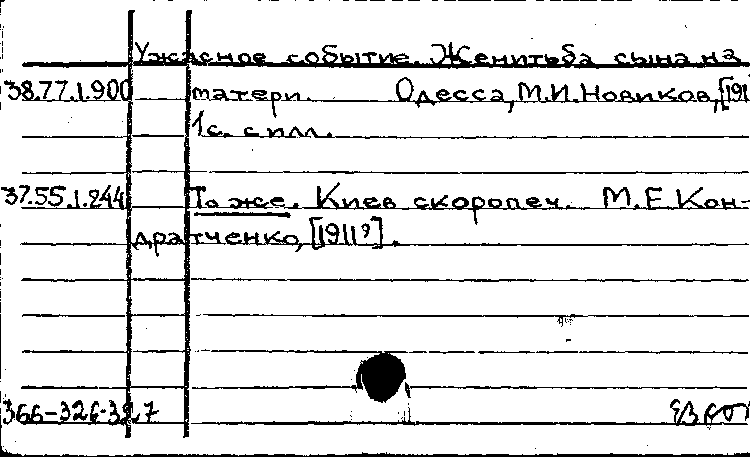 Ужасное событие. Женитьба сына на
38.77.1.900 матери. Одесса, М.И. Новиков, [191
1с. с илл.
37.55.1.244 То же. Киев скоропеч. М.Е. Кон-
дратченко, [1911?].
366-326-327